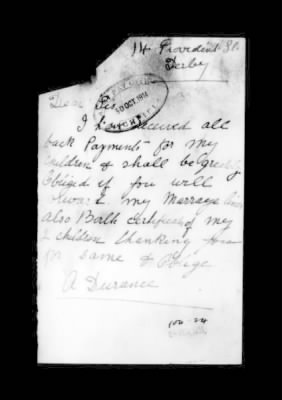 14 Provident St.
Derby
Dear Sir
PAY OFFICE
30 OCT. 1914
I have received all
back Payments for my
Children & shall be greatly
Obliged if you will
forward my Marrage lines
also Berth Certificates of my
2 children thanking you
for same & Oblige
A Durance